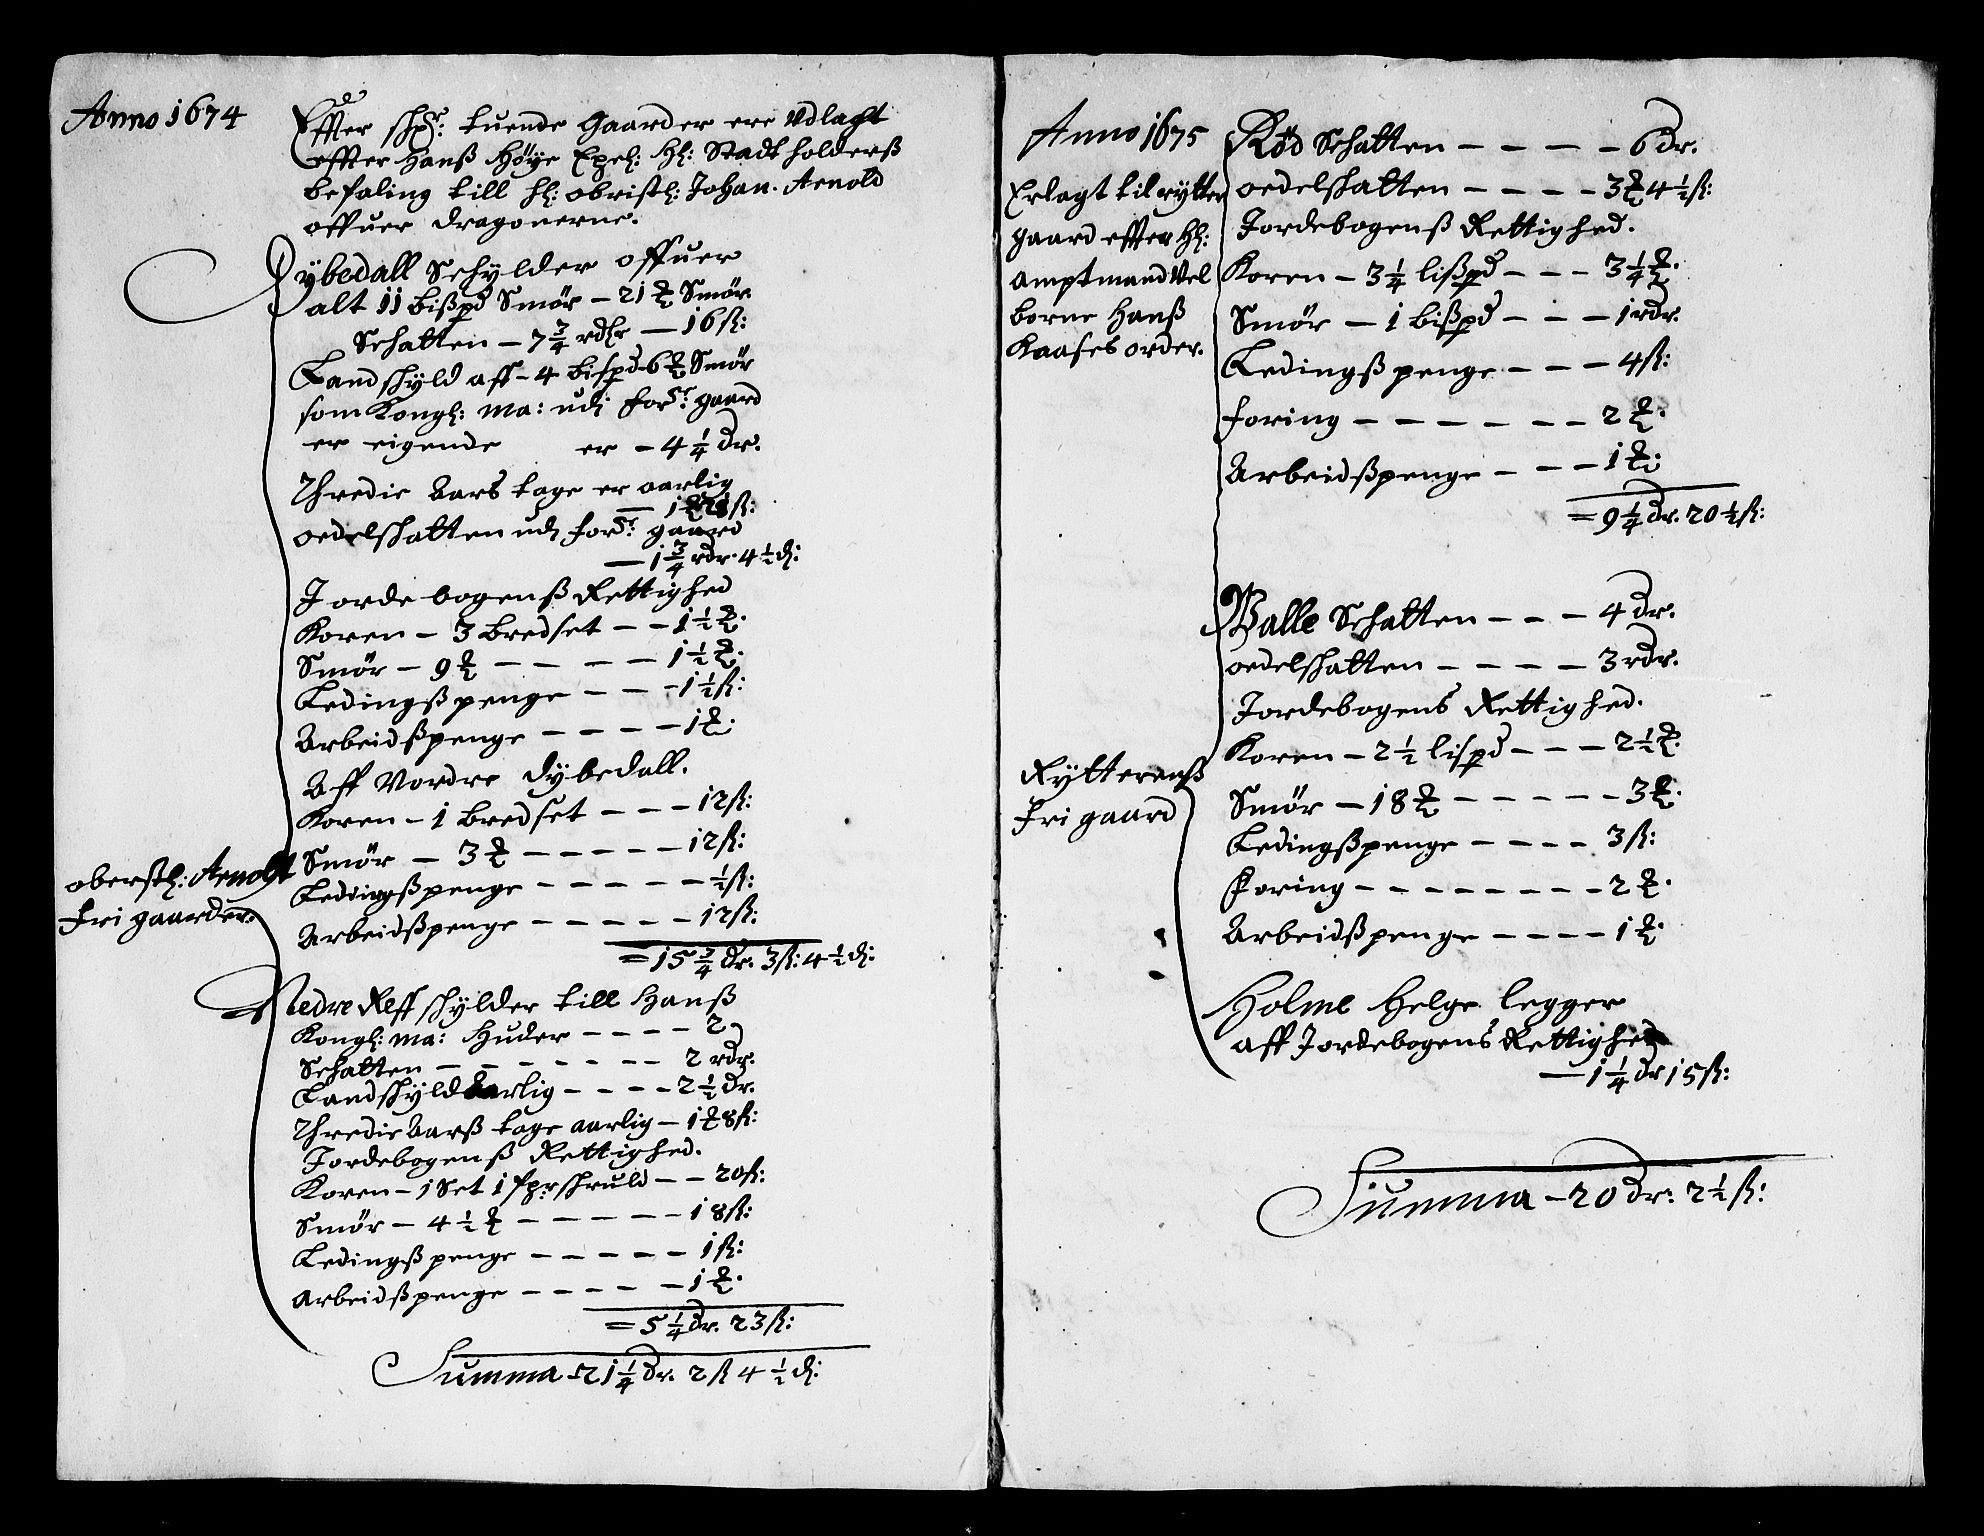 Anno 1674
Effter skr: tuende Gaarder ere Udlagt
effter Hanß Høye Exel: Hl: Stadtholderß
befaling till Hl: obristl: Johan. Arnold
offuer dragonerne.
Dybedall Schylder offuer
alt 11 bißpd Smør – 21 ℔ Smør
Schatten – 7 3/4 rdlr – 16 ß:
Landskyld aff – 4 bispd 6 ℔ Smør
som Kongl: Ma: udi forst: gaard
er eigende er – 4 1/4 dr.
Thredie Aars tage er aarlig
oedelskatten udj forst: gaard
– 1 3/4 rdr. 4 1/2 ß:
Jordebogenß Rettighed
Koren – 3 bredset – – 1 1/2 ℔.
Smør – 9 ℔ – – – – 1 1/2 ℔.
Ledingßpenge – – – 1 1/2 ß:
Arbeidßpenge – – – – 1 ℔.
Aff Nordre Dybedall.
Koren – 1 bredset – – – 12 ß:
oberstl: Arnoldt
fri gaarder.
Smør – 3 ℔ – – – – – 12 ß:
Ledingßpenge – – – – – – 1/2 ß:
Arbeidßpenge – – – – – 12 ß:
= 15 3/4 dr. 3 ß: 4 1/2 d:
Nedre Reff skylder till Hanß
Kongl: Ma: Huder – – – – 2
Schatten – – – – – – – 2 rdr.
Landskyld aarlig – – – – 2 1/2 dr.
Thredie Aarß tage aarlig – 1 ℔ 8 ß:
Jordebogenß Rettighed.
Koren – 1 Set 1 spr skruld – – 20 ß:
Smør – 4 1/2 ℔ – – – – – – 18 ß:
Ledingßpenge – – – – – – 1 ß:
Arbeidßpenge – – – – – 1 ℔.
= 5 1/4 dr. 23 ß:
Summa – 21 1/4 dr. 2 ß 4 1/2 d:
Anno 1675
Erlagt til rytter
gaard effter Hl:
Amptmand Vel
borne Hanß
Kaases order.
Rød Schatten – – – – – 6 dr.
oedelskatten – – – – 3 ℔ 4 1/2 ß:
Jordebogenß Rettighed.
Koren – 3 1/4 lißpd – – – 3 1/4 ℔.
Smør – 1 bißpd – – – 1 rdr.
Ledingß penge – – – 4 ß:
foring – – – – – – – 2 ℔.
Arbeidßpenge – – – 1 ℔:
= 9 1/4 dr. 20 1/2 ß:
Rytterenß
Fri gaard
Walle Schatten – – – 4 dr.
oedelskatten – – – – 3 rdr.
Jordebogens Rettighed.
Koren – 2 1/2 lispd – – – 2 1/2 ℔.
Smør – 18 ℔ – – – – – – 3 ℔.
Ledingßpenge – – – – 3 ß:
Foring – – – – – – – – 2 ℔.
Arbeidßpenge – – – – 1 ℔.
Holme Helge legger
aff Jordebogens Rettighed
– 1 1/4 dr 15 ß:
Summa – 20 dr: 2 1/2 ß: